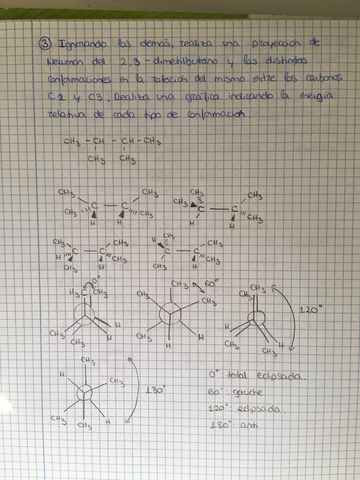 ③ Ignorando las demás, realiza una proyección de
Neuman del 2,3-dimetilbutano y las distintas
conformaciones en la rotación del mismo entre los carbonos
C2 y C3. Realiza una gráfica indicando la energía
relativa de cada tipo de conformación.
CH3 - CH - CH - CH3
CH3 CH3
CH3 CH3 CH3 CH3
C C C C
CH3 H H CH3 H H CH3
CH3 CH3 H CH3 CH3
C C C C
H CH3 H CH3 CH3 H CH3
0° CH3 60° CH3
H3C CH3 CH3 120°
CH3 H H CH3 H H CH3 CH3 H
CH3
H CH3 180° 0° total eclipsada.
60° gauche
120° eclipsada
CH3 CH3 H 180° anti